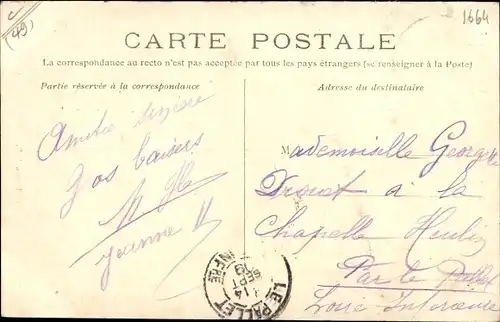 (49)
1664
CARTE POSTALE
La correspondance au recto n'est pas acceptée par tous les pays étrangers (se renseigner à la Poste)
Partie réservée à la correspondance
Adresse du destinataire
Amitié sincère
baisers
Jeanne H
Mademoiselle
Drouet à la
Chapelle Heulin
Par le Pallet
Loire Inférieure
LE PALLET
14